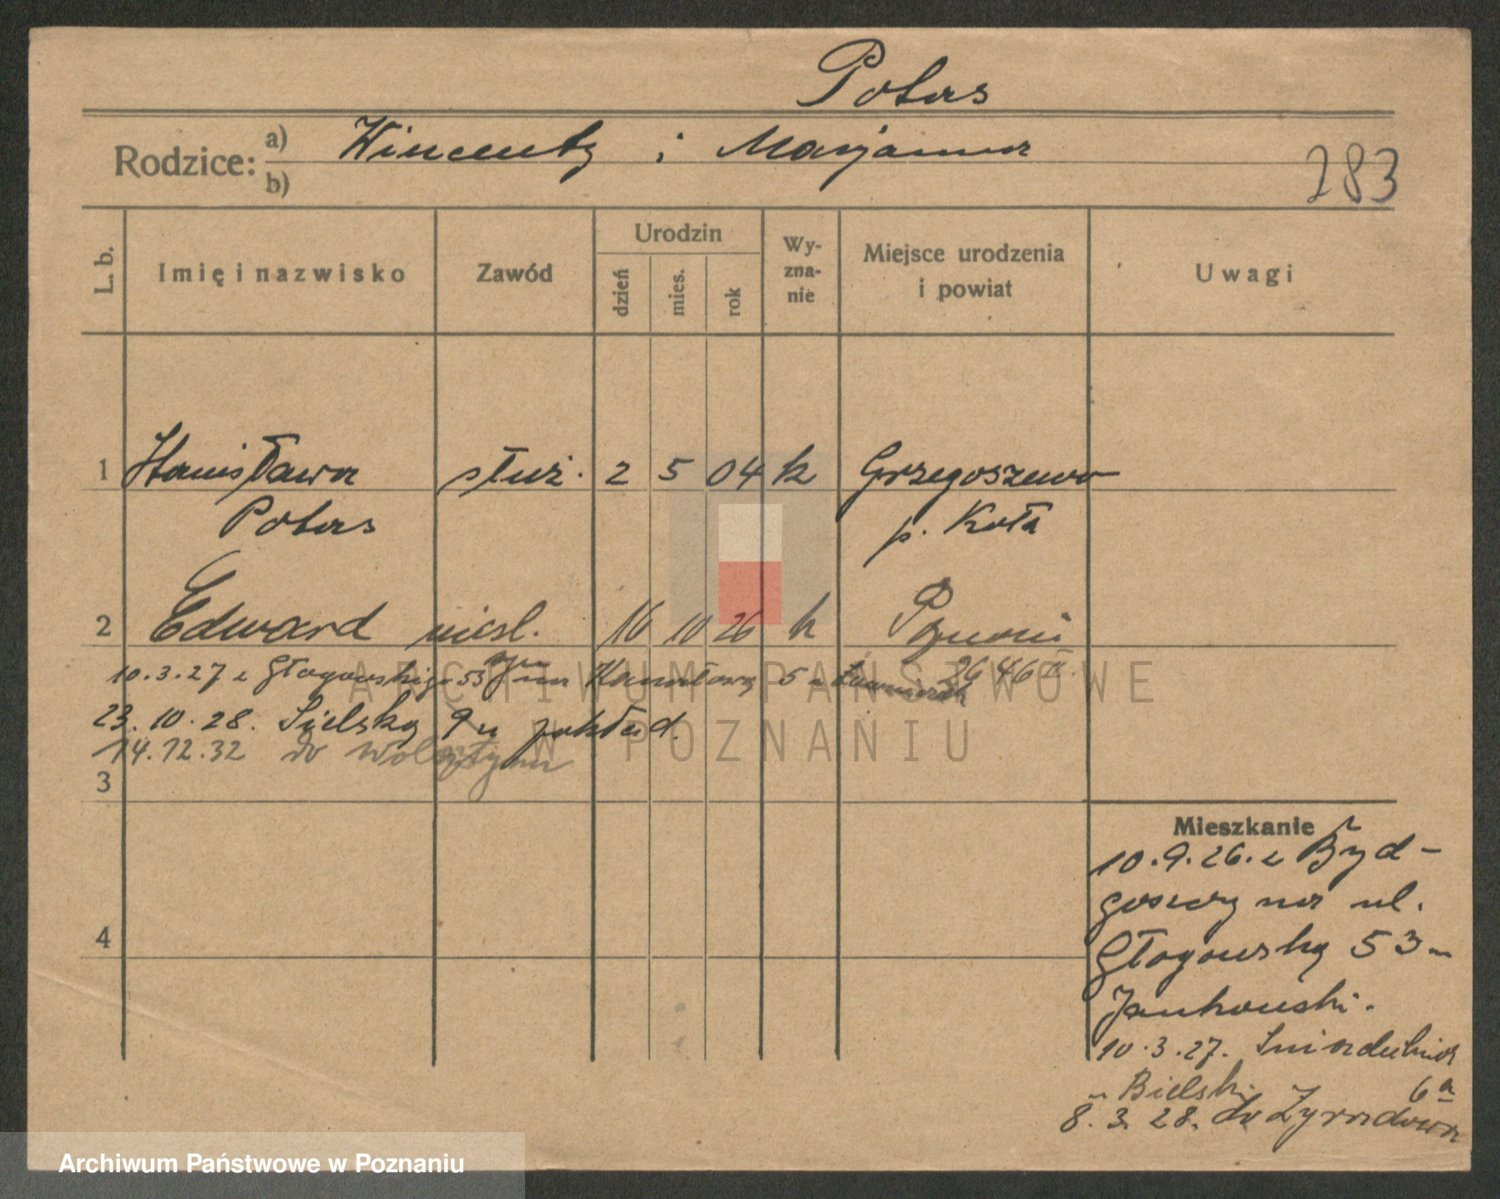 Potas
Rodzice: a) Wincenty i Marjanna
b)
283
L. b.
Imię i nazwisko
Zawód
Urodzin
dzień
mies.
rok
Wy-
zna-
nie
Miejsce urodzenia
i powiat
Uwagi
1 Stanisława służ. 2 5 04 k Grzegoszewo
Potas p. Koła
2 Edward niesl. 16 10 26 k Poznań
syn 2646
10.3.27 z Głogowskiej 53 na Kanałową 5
23.10.28. Sielską 9 u
14.12.32 do Wolsztynu
3
4
Mieszkanie
10.9.26. z Byd-
goszczy na ul.
Głogowską 53 u
Jankowski.
10.3.27. Śniadeckich
u Bielski 6a
8.3.28. do Żyrardowa
ARCHIWUM PAŃSTWOWE
W POZNANIU
Archiwum Państwowe w Poznaniu